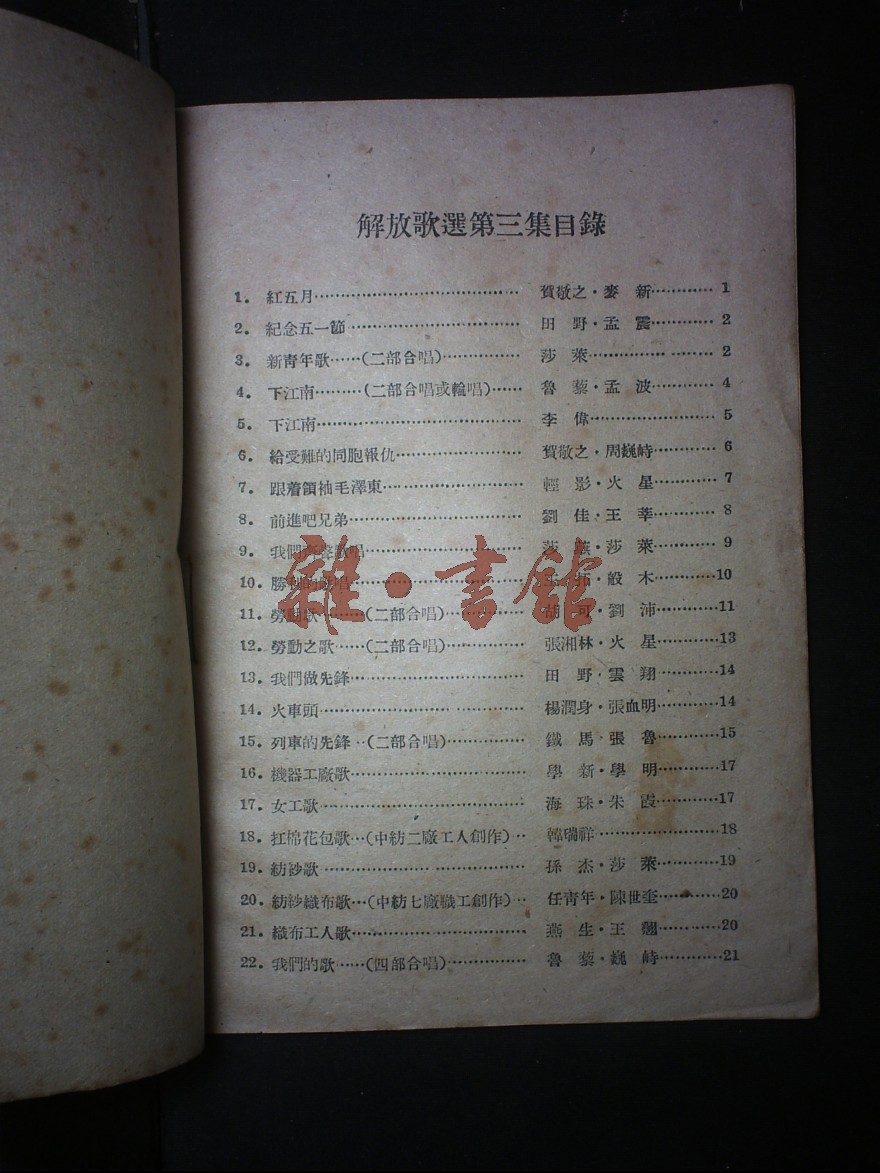 解放歌選第三集目錄
1. 紅五月…………………………………賀敬之·麥 新…………1
2. 紀念五一節……………………………田 野·孟 震…………2
3. 新青年歌……(二部合唱)……………莎 萊……………………2
4. 下江南………(二部合唱或輪唱)……魯 藜·孟 波…………4
5. 下江南…………………………………李 偉……………………5
6. 給受難的同胞報仇……………………賀敬之·周巍峙…………6
7. 跟着領袖毛澤東………………………輕 影·火 星…………7
8. 前進吧兄弟……………………………劉 佳·王 莘…………8
9. 我們齊聲歌唱…………………………·莎 萊…………9
10. 勝利的歌唱……………………………·般 木…………10
11. 勞動歌………(二部合唱)……………胡 可·劉 沛…………11
12. 勞動之歌……(二部合唱)……………張湘林·火 星…………13
13. 我們做先鋒……………………………田 野·雲 翔…………14
14. 火車頭…………………………………楊潤身·張血明…………14
15. 列車的先鋒…(二部合唱)……………鐵 馬·張 魯…………15
16. 機器工廠歌……………………………學 新·學 明…………17
17. 女工歌…………………………………海 珠·朱 霞…………17
18. 扛棉花包歌…(中紡二廠工人創作)…韓瑞祥……………………18
19. 紡紗歌…………………………………孫 杰·莎 萊…………19
20. 紡紗織布歌…(中紡七廠職工創作)…任青年·陳世奎…………20
21. 織布工人歌……………………………燕 生·王 翹…………20
22. 我們的歌……(四部合唱)……………魯 藜·巍 峙…………21
雜·書館